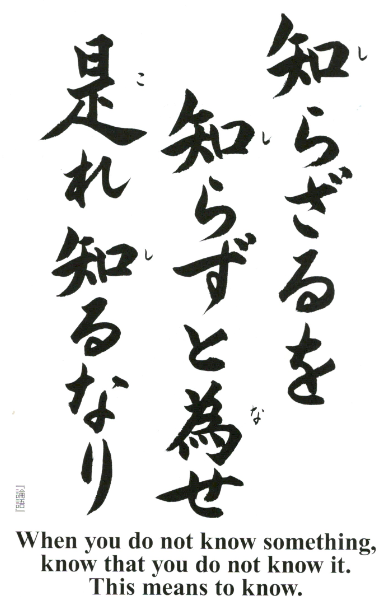 知らざるを
知らずと為せ
是れ知るなり
『論語』
When you do not know something,
know that you do not know it.
This means to know.